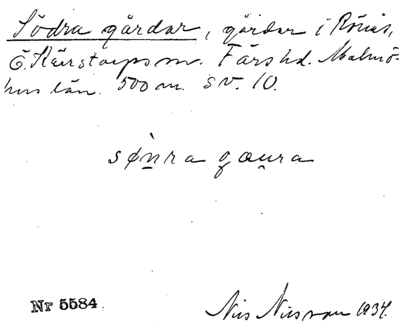 Södra gårdar, gårdar i Rönås,
Ö. Kärstorps sn. Färs hd. Malmö-
hus län. 500 m. SV. 10.
sønra gæura
Nr 5584
Nils Nilsson 1934.